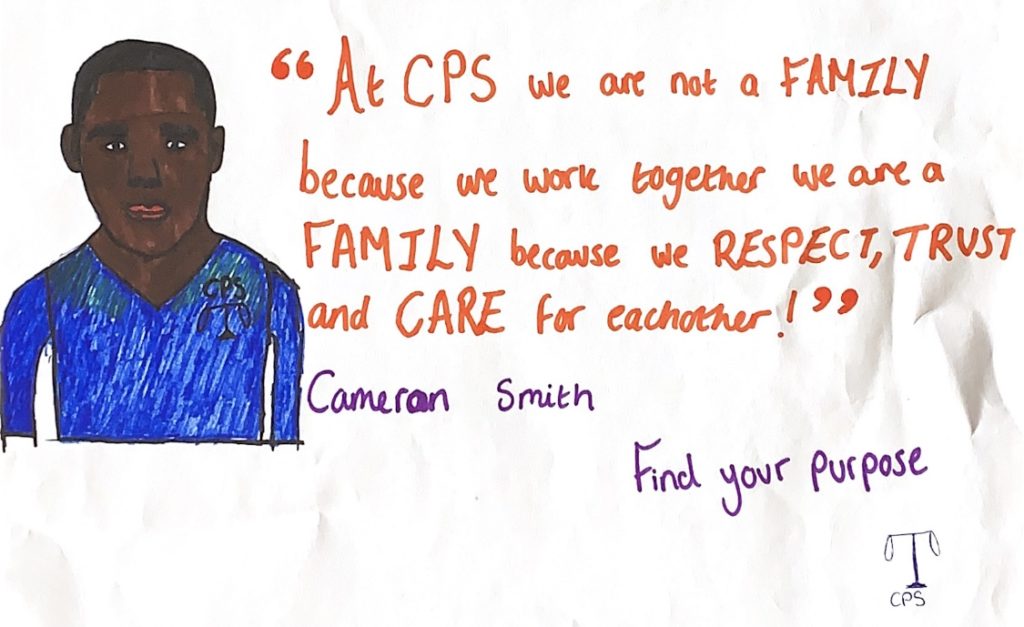 “At CPS we are not a FAMILY
because we work together we are a
FAMILY because we RESPECT, TRUST
and CARE for eachother!”
CPS
Cameron Smith
Find your purpose
CPS